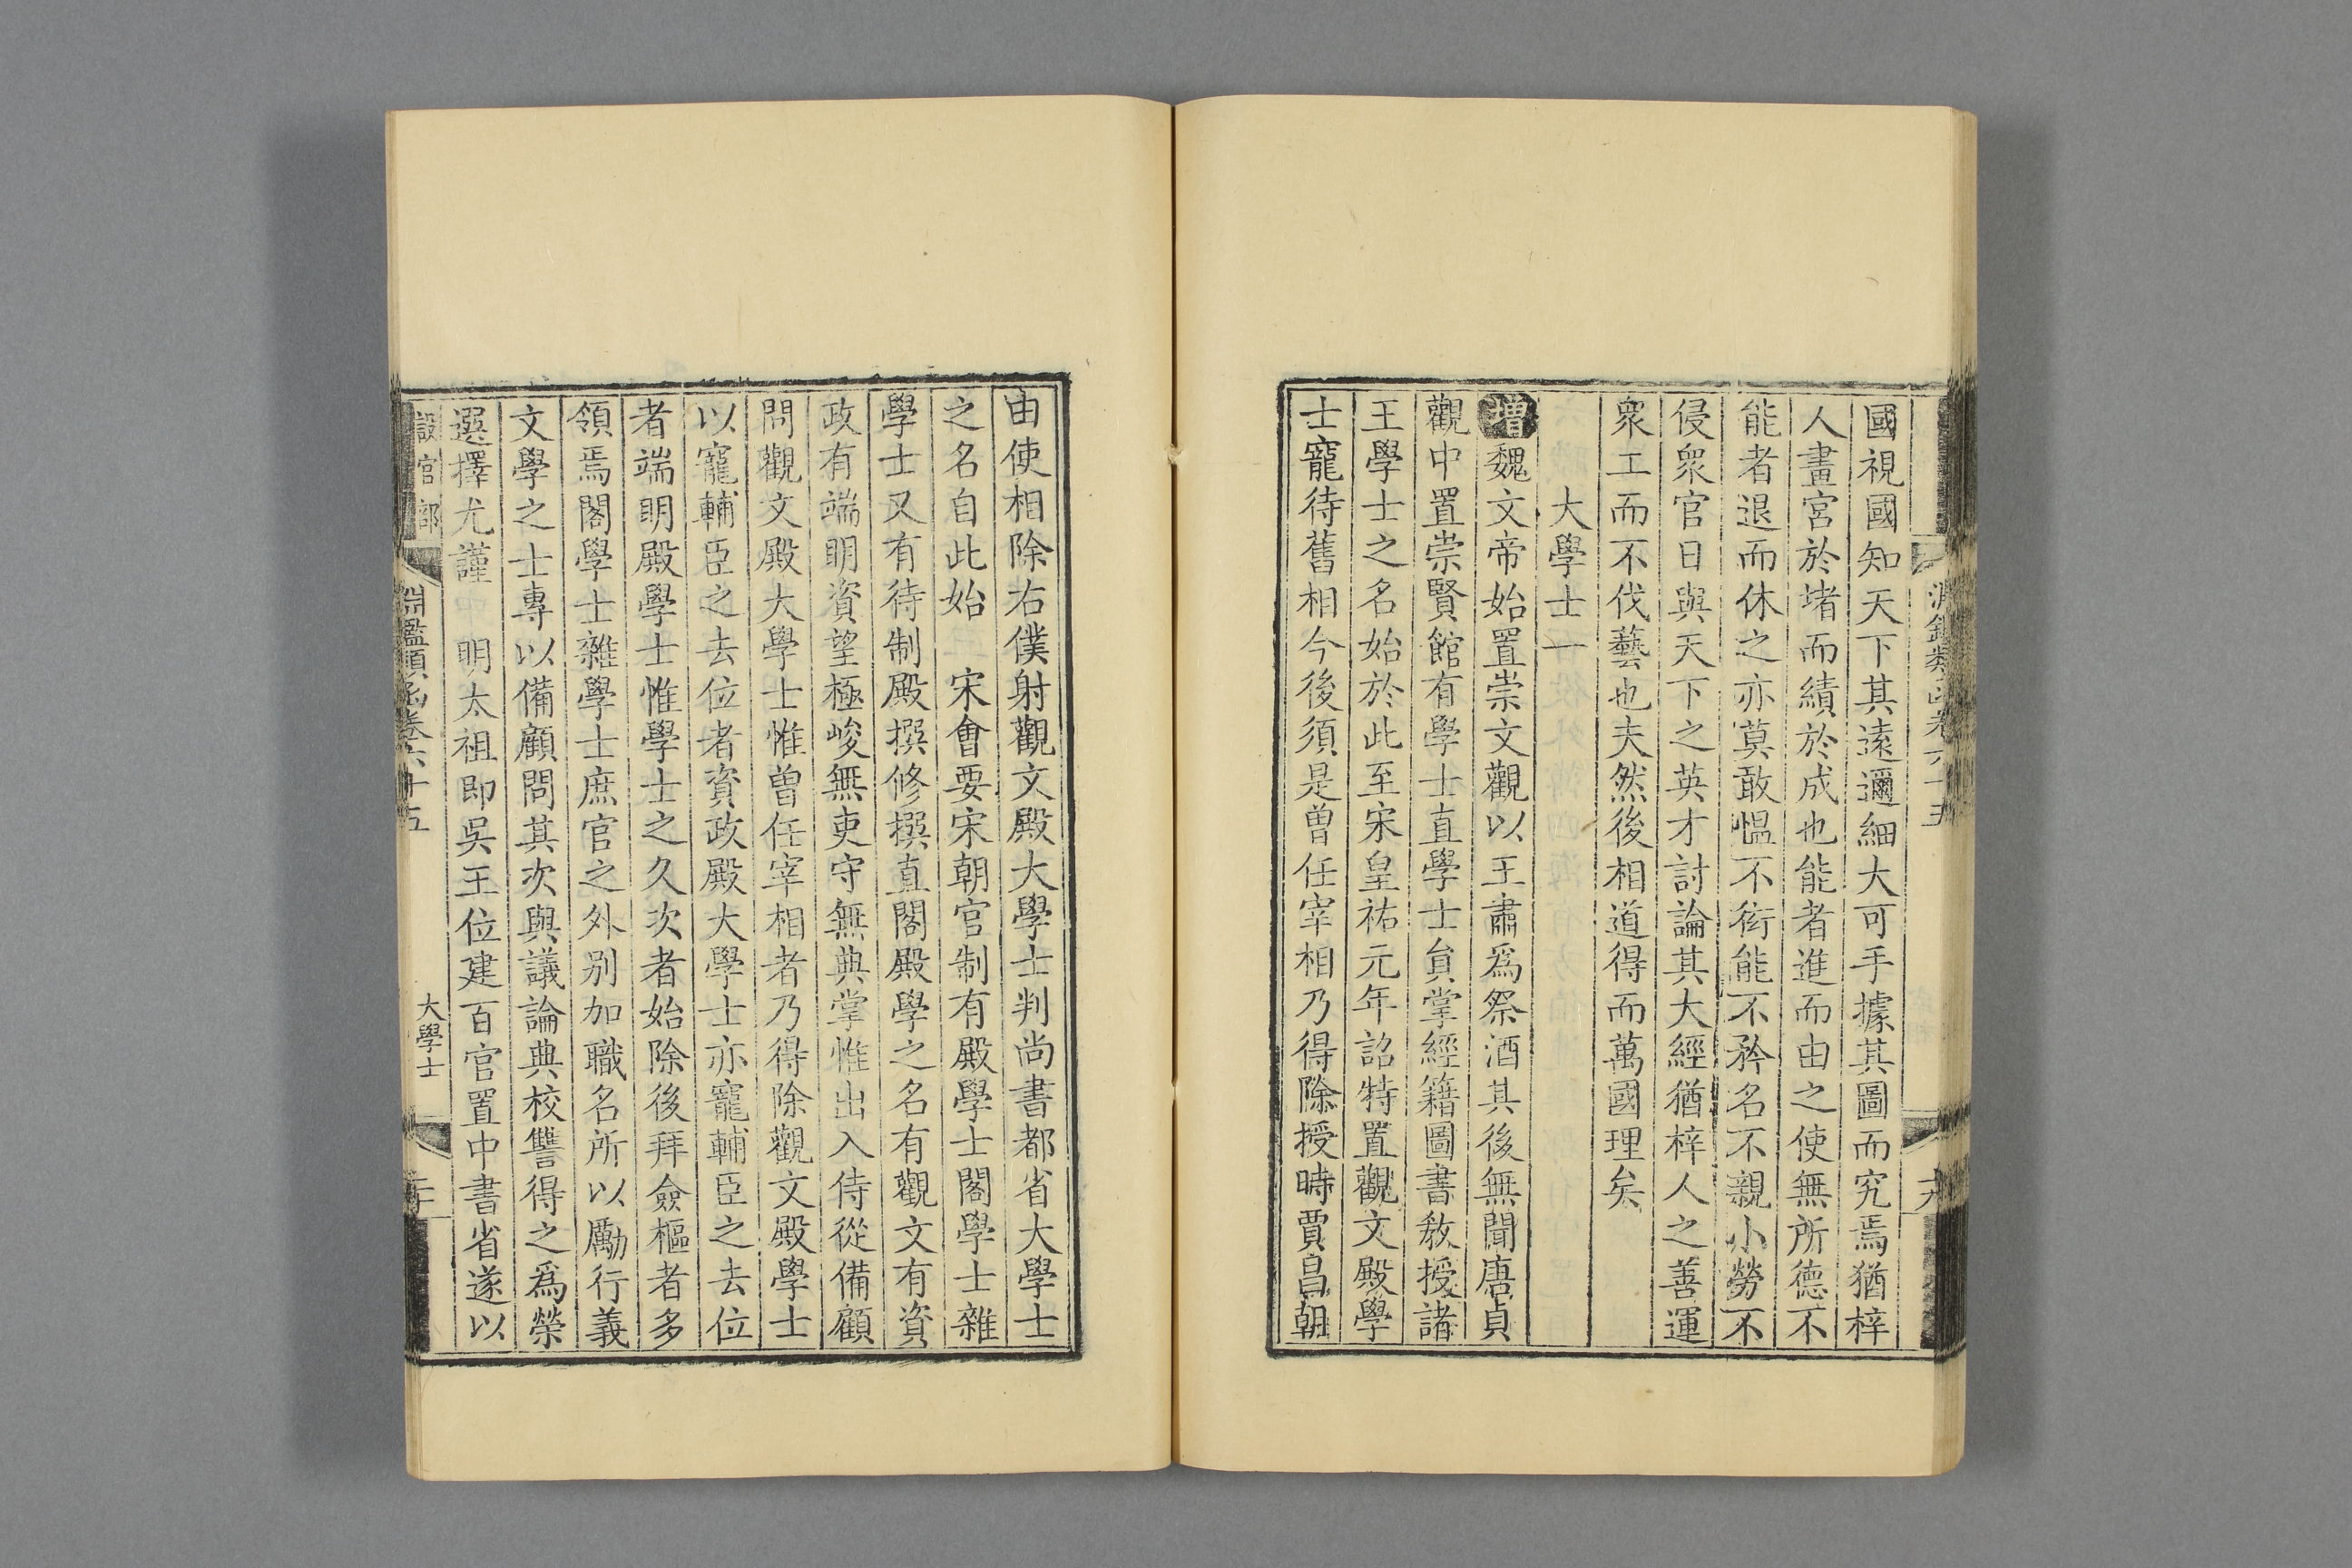 淵鑑類函卷六十五
十九
國視國知天下其遠邇細大可手據其圖而究焉猶梓
人畫宮於堵而績於成也能者進而由之使無所德不
能者退而休之亦莫敢慍不衒能不矜名不親小勞不
侵衆官日與天下之英才討論其大經猶梓人之善運
衆工而不伐藝也夫然後相道得而萬國理矣
大學士一
增魏文帝始置崇文觀以王肅爲祭酒其後無聞唐貞
觀中置崇賢館有學士直學士負掌經籍圖書敎授諸
王學士之名始於此至宋皇祐元年詔特置觀文殿學
士寵待舊相今後須是曾任宰相乃得除授時賈昌朝
由使相除右僕射觀文殿大學士判尚書都省大學士
之名自此始 宋會要宋朝官制有殿學士閣學士雜
學士又有待制殿撰修撰直閣殿學之名有觀文有資
政有端明資望極峻無吏守無典掌惟出入侍從備顧
問觀文殿大學士惟曾任宰相者乃得除觀文殿學士
以寵輔臣之去位者資政殿大學士亦寵輔臣之去位
者端明殿學士惟學士之久次者始除後拜僉樞者多
領焉閣學士雜學士庶官之外別加職名所以勵行義
文學之士專以備顧問其次與議論典校讐得之爲榮
選擇尤謹 明太祖即吳王位建百官置中書省遂以
設官部
淵鑑類函卷六十五
大學士
二十